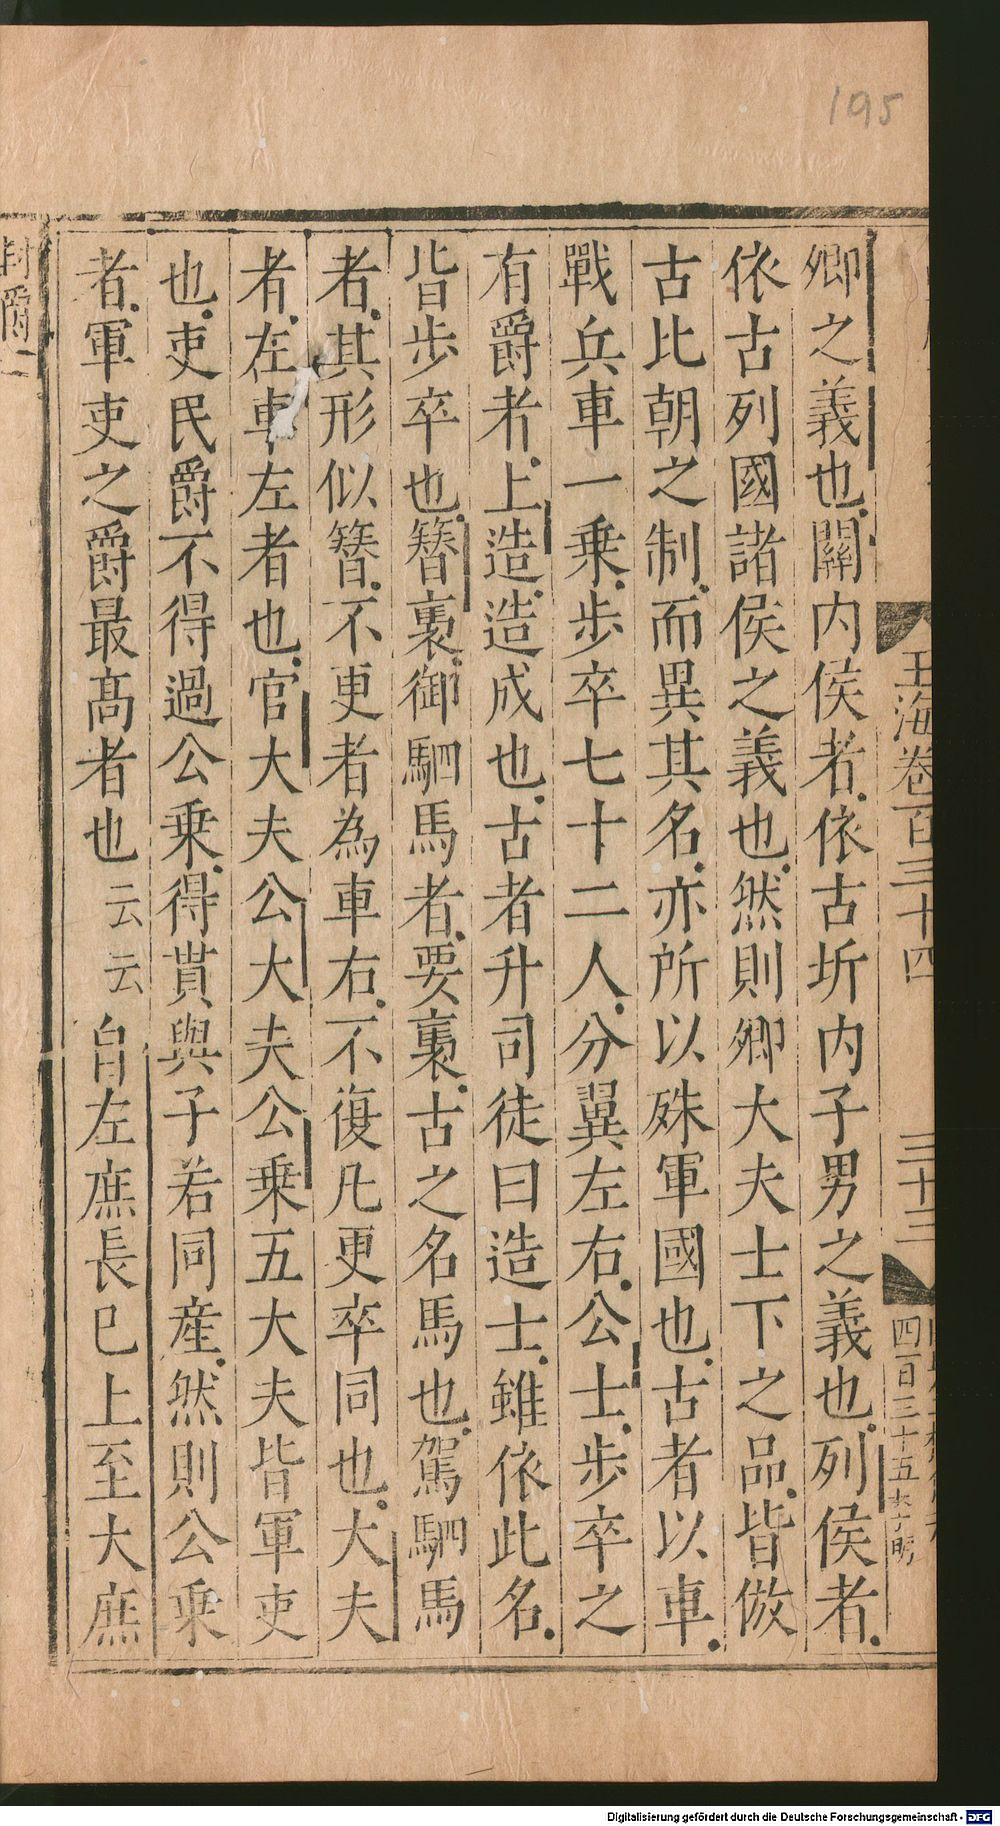 195
玉海卷百三十四
三十三
四百三十五
卿之義也關内侯者依古圻内子男之義也列侯者
依古列國諸侯之義也然則卿大夫士下之品皆倣
古比朝之制而異其名亦所以殊軍國也古者以車
戰兵車一乗步卒七十二人分翼左右公士步卒之
有爵者上造造成也古者升司徒曰造士雖依此名
皆步卒也簪褭御駟馬者要褭古之名馬也駕駟馬
者其形似簪不更者為車右不復凡更卒同也大夫
者在車左者也官大夫公大夫公乗五大夫皆軍吏
也吏民爵不得過公乗得貰與子若同産然則公乗
者軍吏之爵最高者也云云自左庶長已上至大庶
封爵二
Digitalisierung gefördert durch die Deutsche Forschungsgemeinschaft - DFG